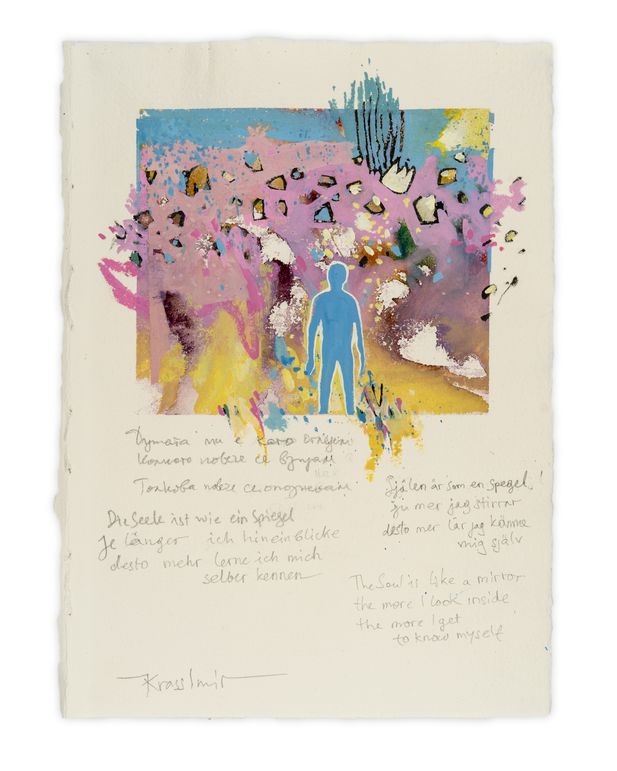 Душата ми е като огледало
Колкото повече се взирам
Толкова повече се опознавам
Die Seele ist wie ein Spiegel
Je länger ich hineinblicke
desto mehr lerne ich mich
selber kennen
Själen är som en spegel
ju mer jag stirrar
desto mer lär jag känna
mig själv
The Soul is like a mirror
the more I look inside
the more I get
to know myself
Krassimir